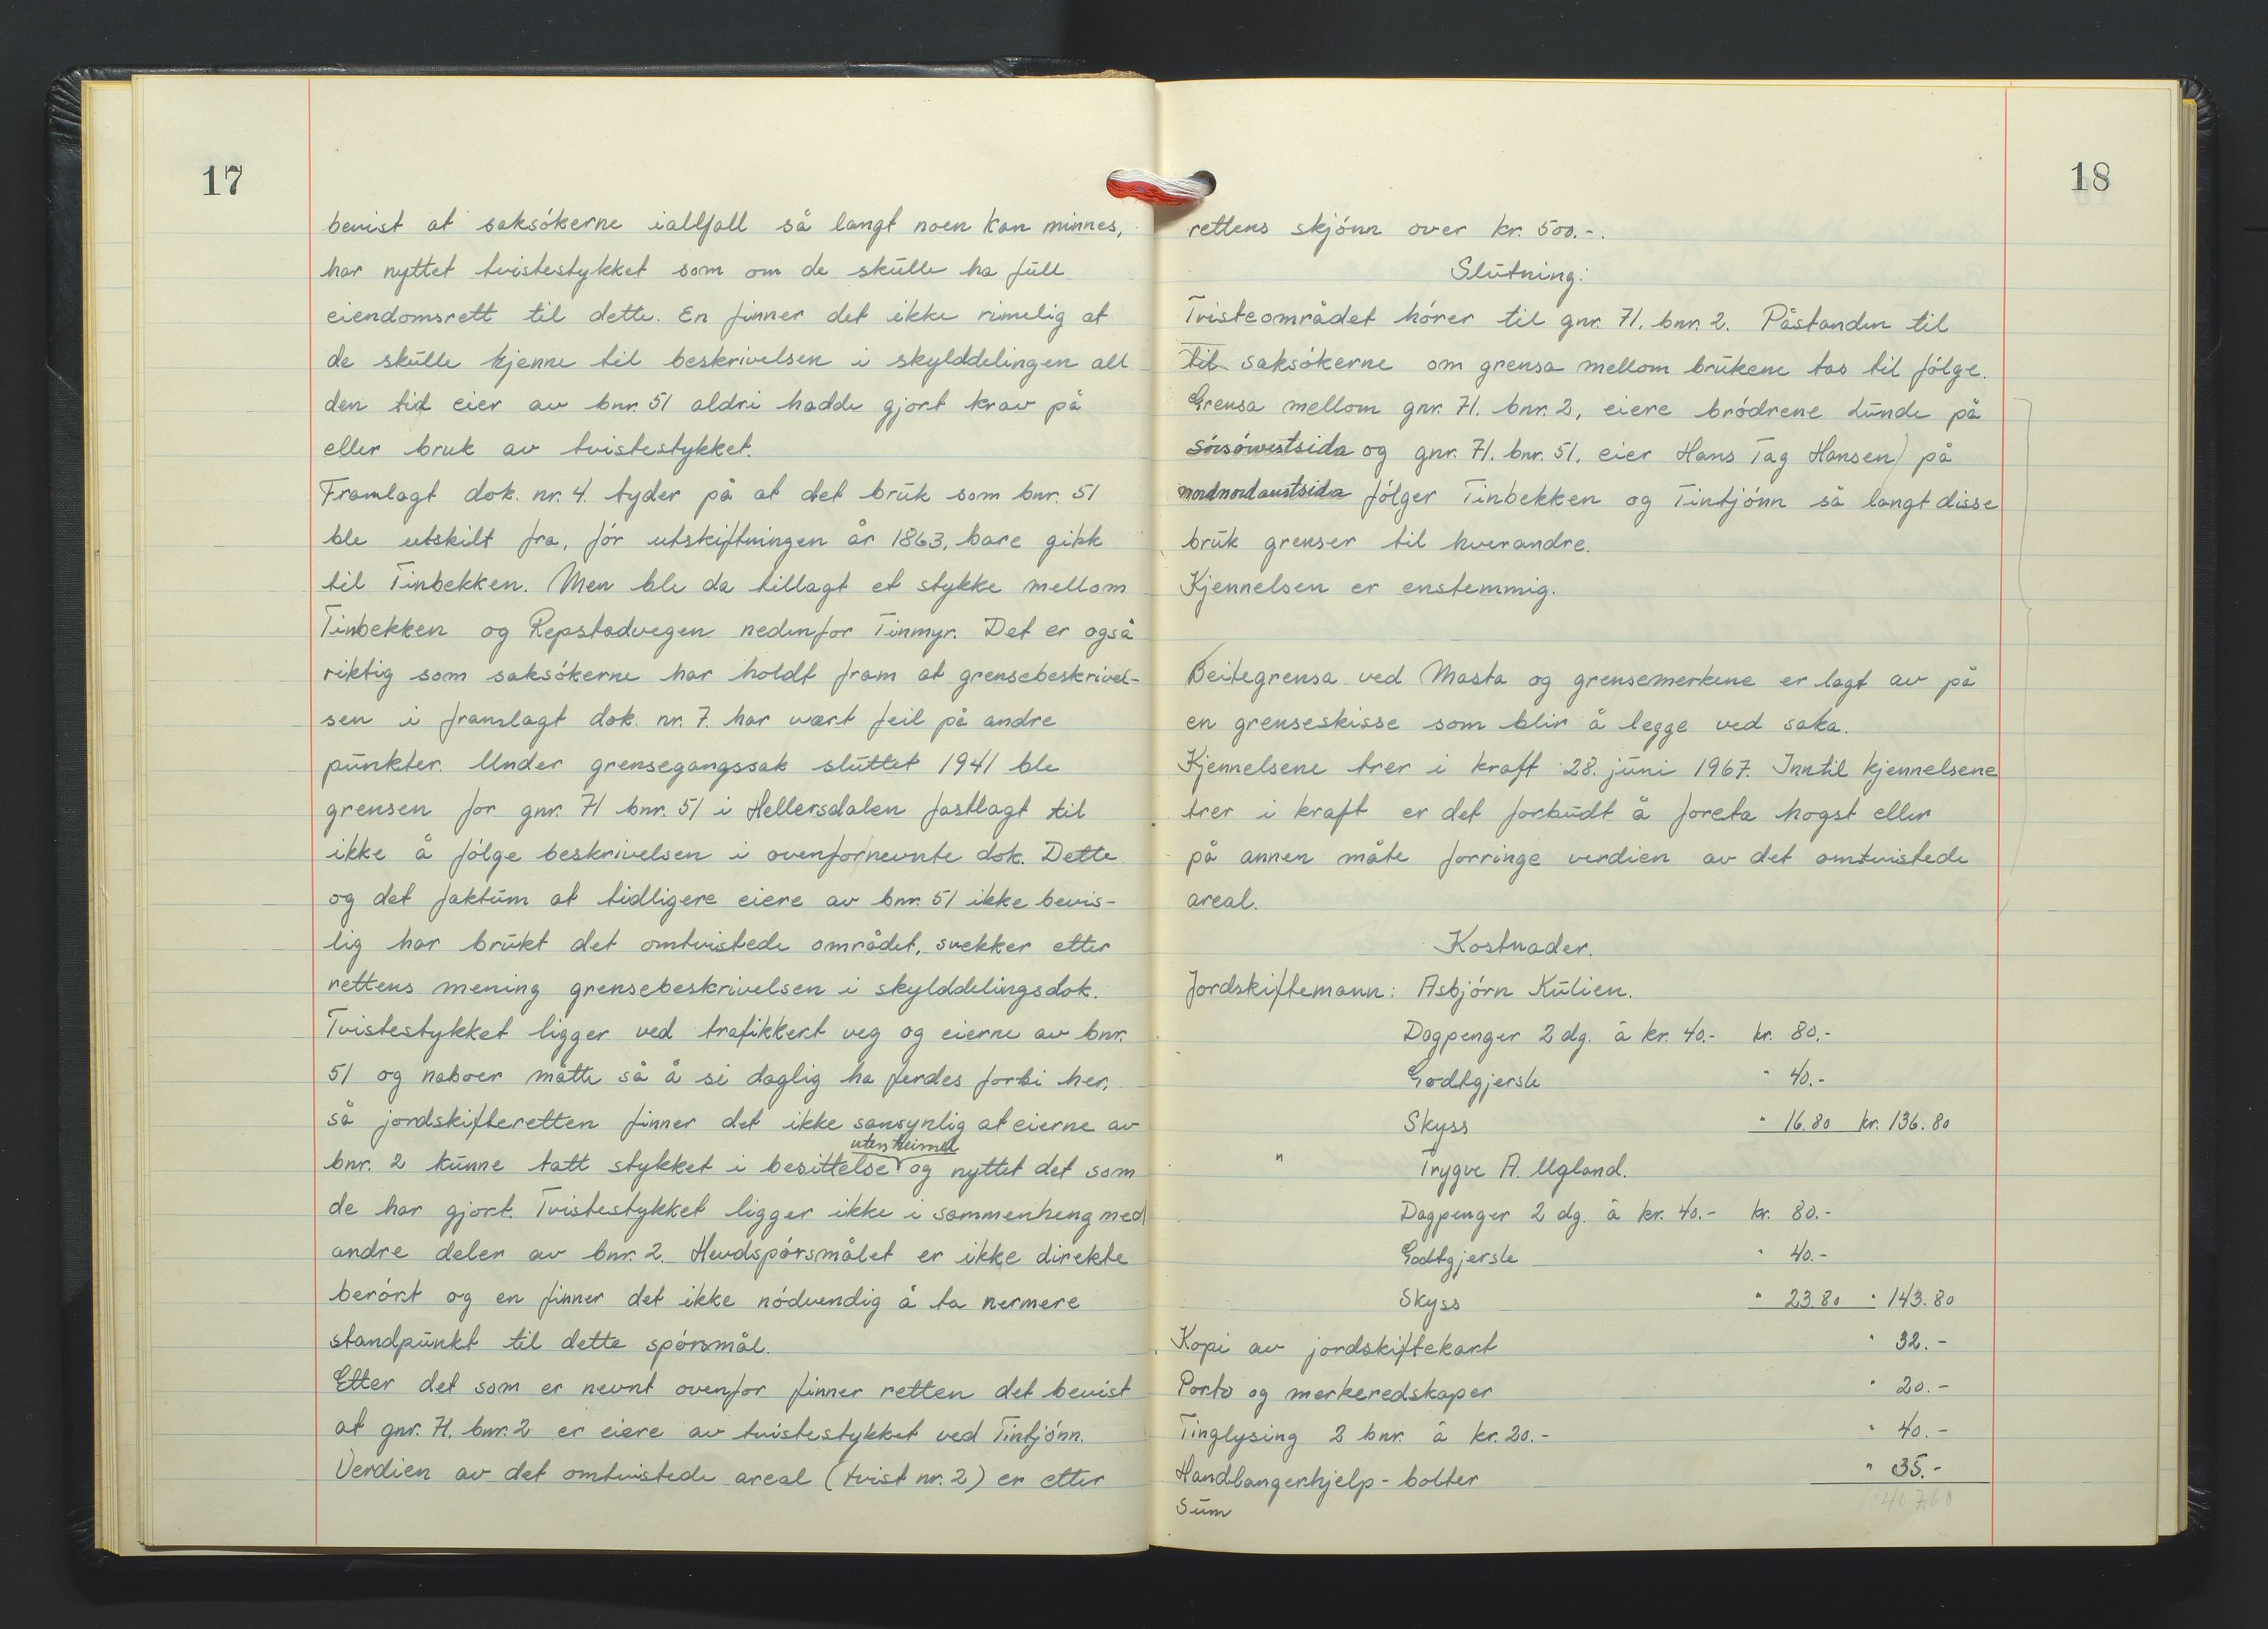 17
bevist at saksökerne iallfall så langt noen kan minnes,
har nyttet tvistestykket som om de skulle ha full
eiendomsrett til dette. En finner det ikke rimelig at
de skulle kjenne til beskrivelsen i skylddelingen all
den tid eier av bnr. 51 aldri hadde gjort krav på
eller bruk av tvistestykket.
Framlagt dok. nr. 4. tyder på at det bruk som bnr. 51
ble utskilt fra, för utskiftningen år 1863, bare gikk
til Tinbekken. Men ble da tillagt et stykke mellom
Tinbekken og Repstadvegen nedenfor Tinmyr. Det er også
riktig som saksökerne har holdt fram at grensebeskrivel-
sen i framlagt dok. nr. 7. har vært feil på andre
punkter. Under grensegangssak sluttet 1941 ble
grensen for gnr. 71 bnr. 51 i Hellersdalen fastlagt til
ikke å fölge beskrivelsen i ovenfornevnte dok. Dette
og det faktum at tidligere eiere av bnr. 51 ikke bevis-
lig har brukt det omtvistede området, svekker etter
rettens mening grensebeskrivelsen i skylddelingsdok.
Tvistestykket ligger ved trafikkert veg og eierne av bnr.
51 og naboer måtte så å si daglig ha ferdes forbi her,
så jordskifteretten finner det ikke sansynlig at eierne av
uten heimel
bnr. 2 kunne tatt stykket i besittelse og nyttet det som
de har gjort. Tvistestykket ligger ikke i sammenheng med
andre deler av bnr. 2. Hevdspörsmålet er ikke direkte
berört og en finner det ikke nödvendig å ta nermere
standpunkt til dette spörsmål.
Etter det som er nevnt ovenfor finner retten det bevist
at gnr. 71, bnr. 2 er eiere av tvistestykket ved Tintjönn.
Verdien av det omtvistede areal (tvist nr. 2) er etter
18
rettens skjönn over kr. 500.-.
Slutning:
Tvisteområdet hörer til gnr. 71. bnr. 2. Påstanden til
til saksökerne om grensa mellom brukene tas til fölge.
Grensa mellom gnr. 71. bnr. 2, eiere brödrene Lunde på
sörsörvestsida og gnr. 71. bnr. 51, eier Hans Tag Hansen) på
nordnordaustsida fölger Tinbekken og Tintjönn så langt disse
bruk grenser til hverandre.
Kjennelsen er enstemmig.
Beitegrensa ved Masta og grensemerkene er lagt av på
en grenseskisse som blir å legge ved saka.
Kjennelsene trer i kraft 28. juni 1967. Inntil kjennelsene
trer i kraft er det forbudt å foreta hogst eller
på annen måte forringe verdien av det omtvistede
areal.
Kostnader.
Jordskiftemann: Asbjörn Kulien.
Dagpenger 2 dg. à kr. 40.- kr. 80.-
Godtgjersle " 40.-
Skyss " 16.80 kr. 136.80
" Trygve A. Ugland.
Dagpenger 2 dg. à kr. 40.- kr. 80.-
Godtgjersle " 40.-
Skyss " 23.80 " 143.80
Kopi av jordskiftekart " 32.-
Porto og merkeredskaper " 20.-
Tinglysing 2 bnr. à kr. 20.- " 40.-
Handlangerhjelp - bolter " 35.-
Sum 407.60